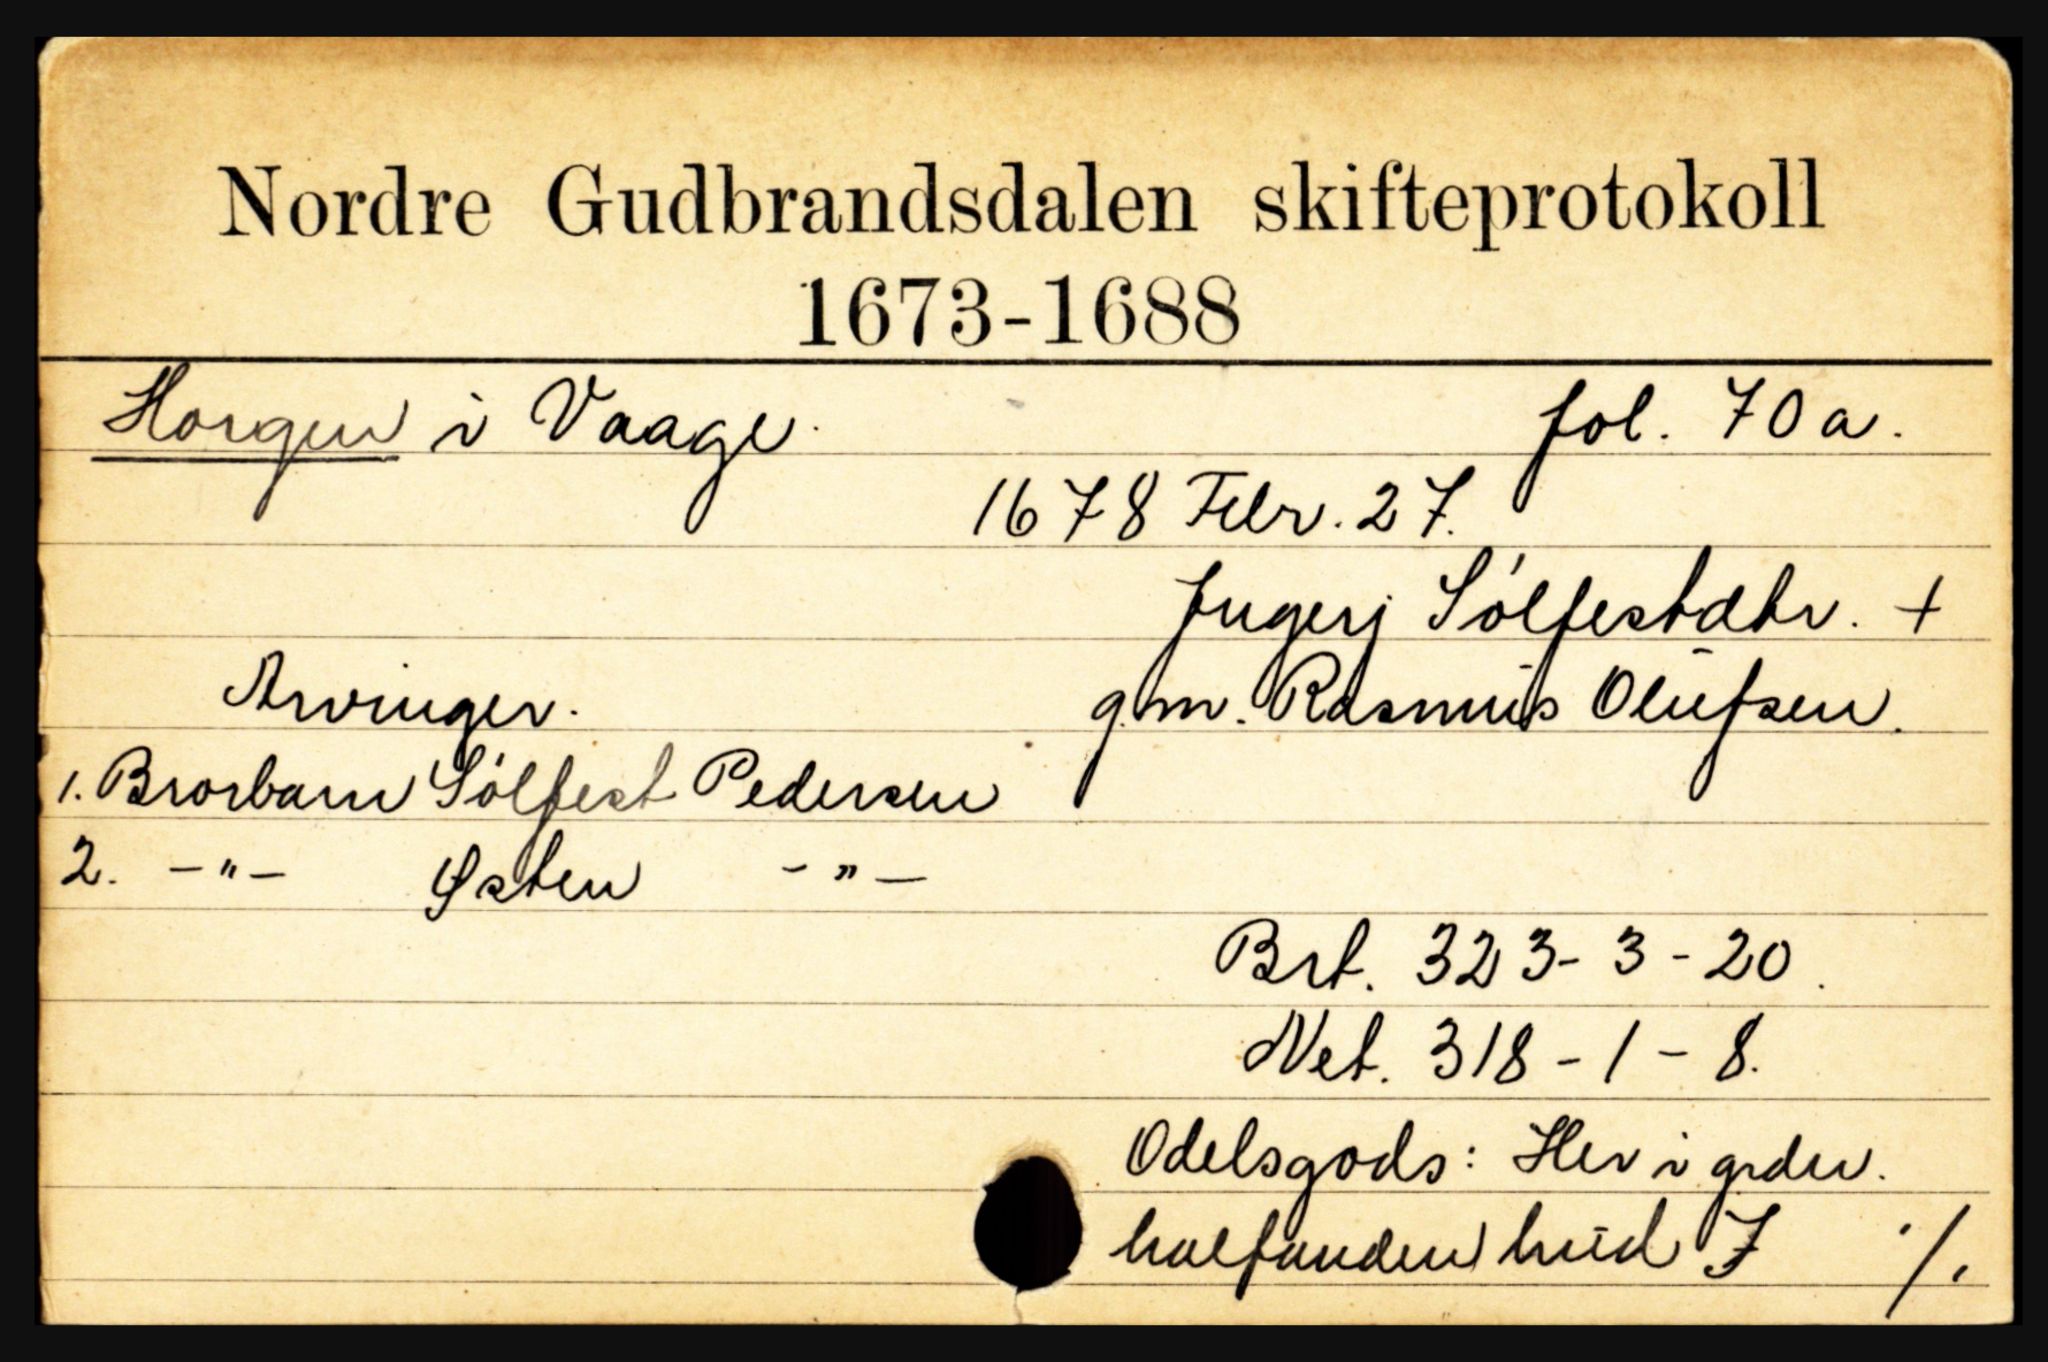 Nordre Gudbrandsdalen skifteprotokoll
1673-1688
Horgen i Vaage. fol. 70a.
1678 Febr. 27.
Ingerj Sólfestdtr. +
Arvinger. g.m. Rasmus Olufsen.
1. Brorbarn Sólfest Pedersen
2. -"- Østen -"-
Brt. 323-3-20.
Net. 318-1-8.
Odelsgods: Her i grden.
halfanden hud J ·/.